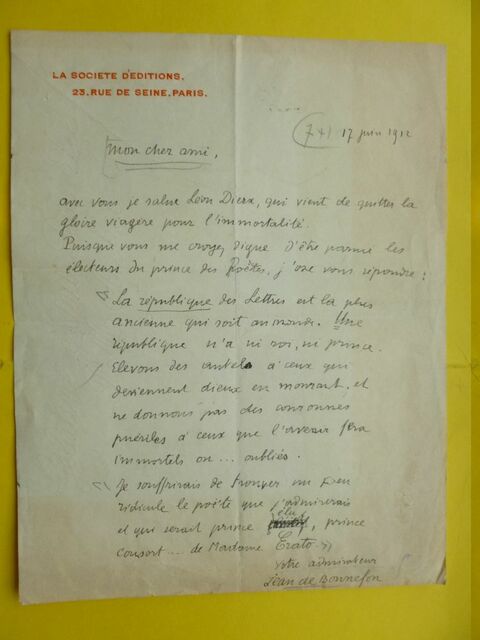 LA SOCIETE D'EDITIONS.
23, RUE DE SEINE, PARIS.
(7+) 17 juin 1912
Mon cher ami,
avec vous je salue Léon Dierx, qui vient de quitter la
gloire viagère pour l'immortalité.
Puisque vous me croyez digne d'être parmi les
électeurs du prince des Poëtes, j'ose vous répondre :
« La république des Lettres est la plus
ancienne qui soit au monde. Une
république n'a ni roi, ni prince.
Elevons des autels à ceux qui
deviennent dieux en mourant, et
ne donnons pas des couronnes
puériles à ceux que l'avenir fera
immortels ou ... oubliés.
« Je souffrirais de trouver un peu
ridicule le poëte que j'admirerais
et qui serait prince élu, prince
consort ... de Madame Erato »
votre admirateur
Jean de Bonnefon